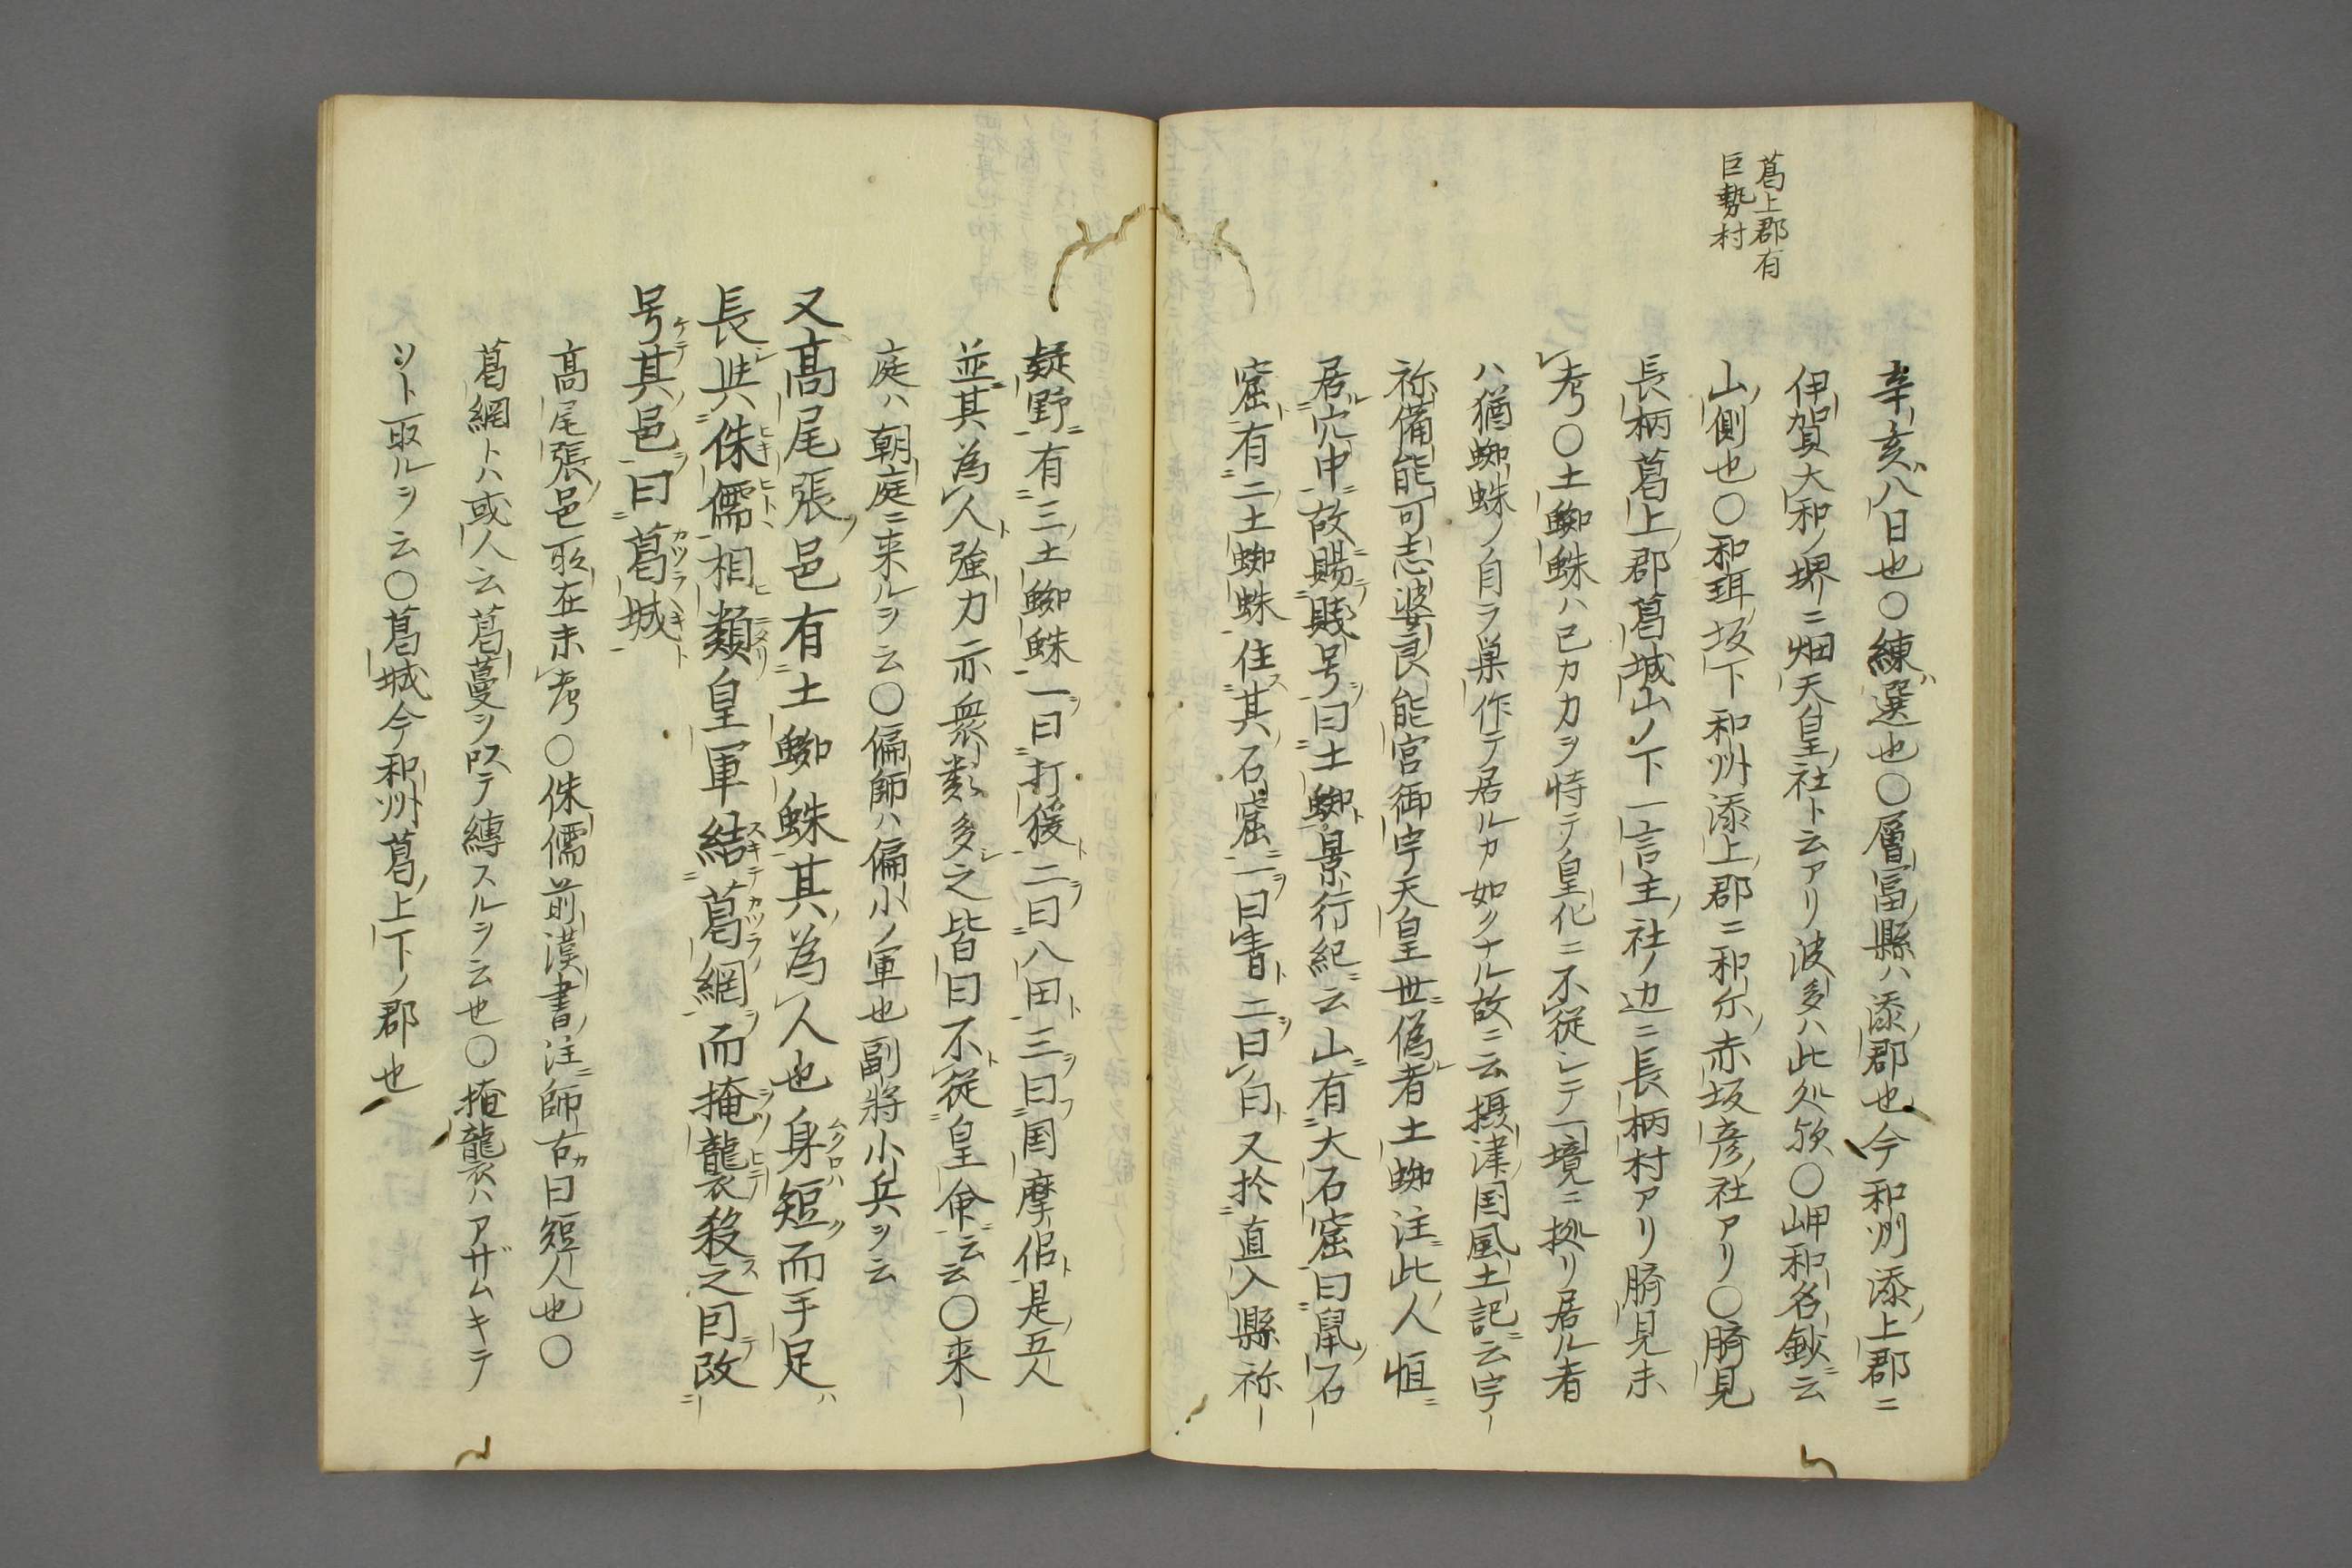 葛上郡有
巨勢村
辛亥ハ八日也〇練ハ選也〇層富縣ハ添郡也今和州添上郡ニ
伊賀大和ノ堺ニ畑天皇社ト云アリ波多ハ此処歟〇岬和名鈔ニ云
山側也〇和珥坂下和州添上郡ニ和尓赤坂彦社アリ〇臍見
長柄葛上郡葛城山ノ下一言主社ノ辺ニ長柄村アリ臍見未
考〇土蜘蛛ハ已カ力ヲ恃テ皇化ニ不従シテ一境ニ拠リ居ル者
ハ猶蜘蛛ノ自ラ巣作テ居ルカ如クナル故ニ云摂津国風土記ニ云宇
祢備能可志婆良能宮御宇天皇世偽者土蜘注此人恒
居穴中故賜賤号曰土蜘景行紀ニ云山有大石窟曰鼠石
窟有二土蜘蛛住其石窟一曰青二曰白又於直入縣祢
疑野有三土蜘蛛一曰打猨二曰八田三曰国摩侶是五人
並其為人強力亦衆類多之皆曰不従皇命云云〇来
庭ハ朝庭ニ来ルヲ云〇偏師ハ偏小ノ軍也副将小兵ヲ云
又高尾張邑有土蜘蛛其為人也身短而手足
長与侏儒相類皇軍結葛網而掩襲殺之因改
号其邑曰葛城
高尾張邑所在未考〇侏儒前漢書注師古曰短人也〇
葛網トハ或人云葛蔓ヲ以テ縛スルヲ云也〇掩襲ハアザムキテ
ソト取ルヲ云〇葛城今和州葛上下ノ郡也